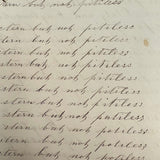 stern but not pitiless
stern but not pitiless
stern but not pitiless
stern but not pitiless
stern but not pitiless
stern but not pitiless
stern but not pitiless
stern but not pitiless
stern but not pitiless